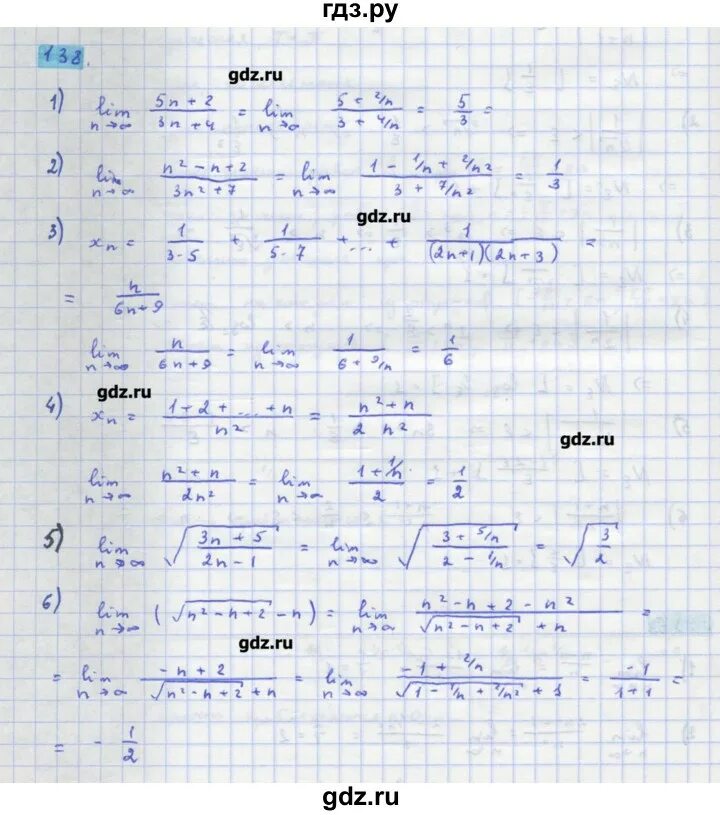 гдз.ру
138.
gdz.ru
1) lim n→∞ (5n + 2)/(3n + 4) = lim n→∞ (5 + 2/n)/(3 + 4/n) = 5/3 =
2) lim n→∞ (n² - n + 2)/(3n² + 7) = lim n→∞ (1 - 1/n + 2/n²)/(3 + 7/n²) = 1/3
gdz.ru
3) xₙ = 1/(3·5) + 1/(5·7) + ... + 1/((2n+1)(2n+3)) =
= n/(6n+9)
lim n→∞ n/(6n+9) = lim n→∞ 1/(6 + 9/n) = 1/6
gdz.ru
4) xₙ = (1 + 2 + ... + n)/n² = (n² + n)/(2 n²)
gdz.ru
lim n→∞ (n² + n)/(2n²) = lim n→∞ (1 + 1/n)/2 = 1/2
5) lim n→∞ √((3n + 5)/(2n - 1)) = lim n→∞ √((3 + 5/n)/(2 - 1/n)) = √(3/2)
6) lim n→∞ (√(n² - n + 2) - n) = lim n→∞ (n² - n + 2 - n²)/(√(n² - n + 2) + n) =
gdz.ru
= lim n→∞ (-n + 2)/(√(n² - n + 2) + n) = lim n→∞ (-1 + 2/n)/(√(1 - 1/n + 2/n²) + 1) = -1/(1+1) =
= - 1/2
gdz.ru